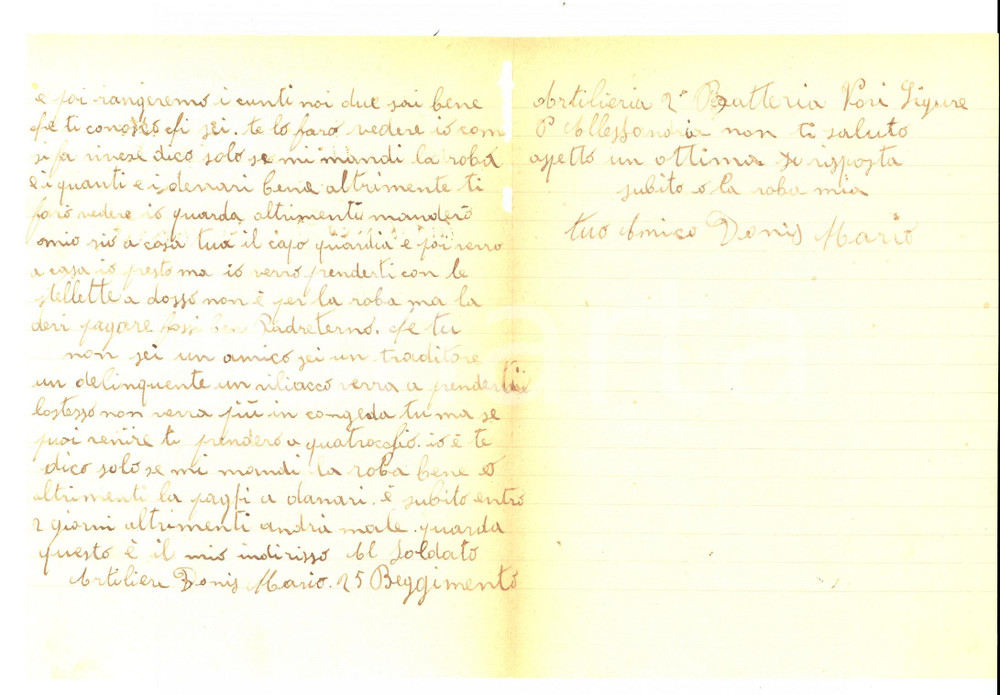 e poi rangeremo i cunti noi due sai bene
che ti conosco chi sei. te lo farò vedere io com
si fa vivere dico solo se mi mandi la roba
e i quanti e i denari bene altrimente ti
farò vedere io guarda altrimenti manderò
omio sio a casa tua il capo guardia e poi verro
a casa io presto ma io verro prenderti con le
stellette a dosso non è per la roba ma la
devi pagare fossi ben Padreterno. che tu
non sei un amico sei un traditore
un delinquente un viliacco verra a prenderti
lostesso non verra più in congeda tu ma se
puoi venire ti prendero a quatrocchio. io è te
dico solo se mi mandi la roba bene o
altrimenti la paghi a danari. è subito entro
2 giorni altrimenti andrà male. guarda
questo è il mio indirisso Al Soldato
Artiliere Donis Mario. 25 Reggimento
Artilieria 2ª Batteria Novi Ligure
P Allessandria non ti saluto
aspetto un ottima risposta
subito o la roba mia
tuo Amico Donis Mario